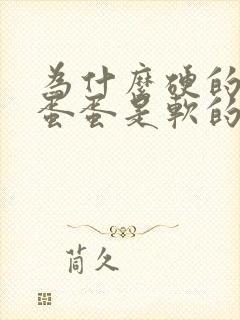 為什麼硬的
蛋蛋是軟的
茼久